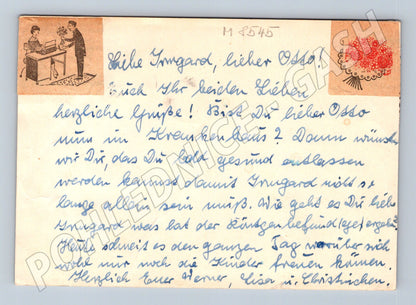 M 8545
Liebe Irmgard, lieber Otto!
Euch Ihr beiden Lieben
herzliche Grüße! Bist Du lieber Otto
nun im Krankenhaus? Dann wünschen
wir Dir, das Du bald gesund entlassen
werden kannst damit Irmgard nicht so
lange allein sein muß. Wie geht es Dir liebe
Irmgard was hat der Röntgenbefund ergeben?
Heute schneit es den ganzen Tag worüber sich
wohl nur noch die Kinder freuen können.
Herzlich Euer Werner, Lisa u. Christinchen.
POHLEDNICE-GACH